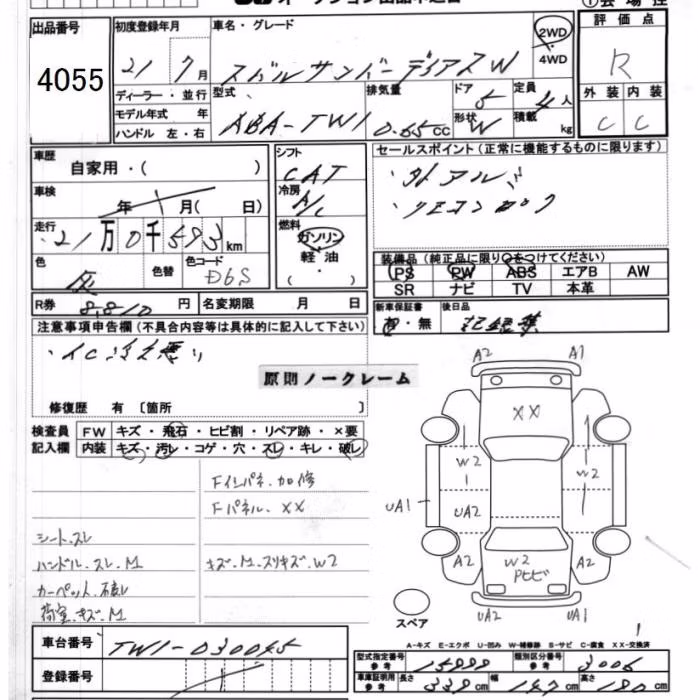 出品番号
4055
初度登録年月
21 7月
ディーラー・並行
モデル年式 年
ハンドル 左・右
車名・グレード
スバルサンバーディアスW
2WD
4WD
型式
ABA-TW1
排気量
0.65cc
ドア
5
形状
W
定員
4人
積載
kg
評価点
R
外装 内装
C C
車歴
自家用・( )
車検
年 月( 日)
走行
21万0千593km
色
灰
色替
色コード
D6S
R券
8,810円
名変期限 月 日
シフト
CAT
冷房
A/C
燃料
ガソリン
軽油
( )
セールスポイント(正常に機能するものに限ります)
・リモコンロック
装備品(純正品に限り○をつけてください)
PS PW ABS エアB AW
SR ナビ TV 本革
新車保証書
有・無
後日品
記録簿
注意事項申告欄(不具合内容等は具体的に記入して下さい)
修復歴 有〔箇所 〕
原則ノークレーム
検査員
記入欄
FW キズ・飛石・ヒビ割・リペア跡・×要
内装 キズ・汚レ・コゲ・穴・スレ・キレ・破レ
Fインパネ.加修
Fパネル.XX
シート.スレ
ハンドル.スレ.M
キズ.M.スリキズ.W2
荷室.キズ.M
A2
A1
XX
W2
W2
UA1
UA2
A2
A2
A2
W2
UA2
UA1
スペア
A-キズ E-エクボ U-凹み W-補修跡 B-サビ C-腐食 XX-交換済
車台番号
TW1-030045
登録番号
型式指定番号
参考
15999
類別区分番号
参考
3006
車庫証明用
参考
長さ
339cm
幅
147cm
高さ
190cm